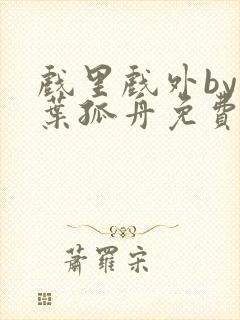 戲里戲外by
葉孤舟免費
蕭羅宋